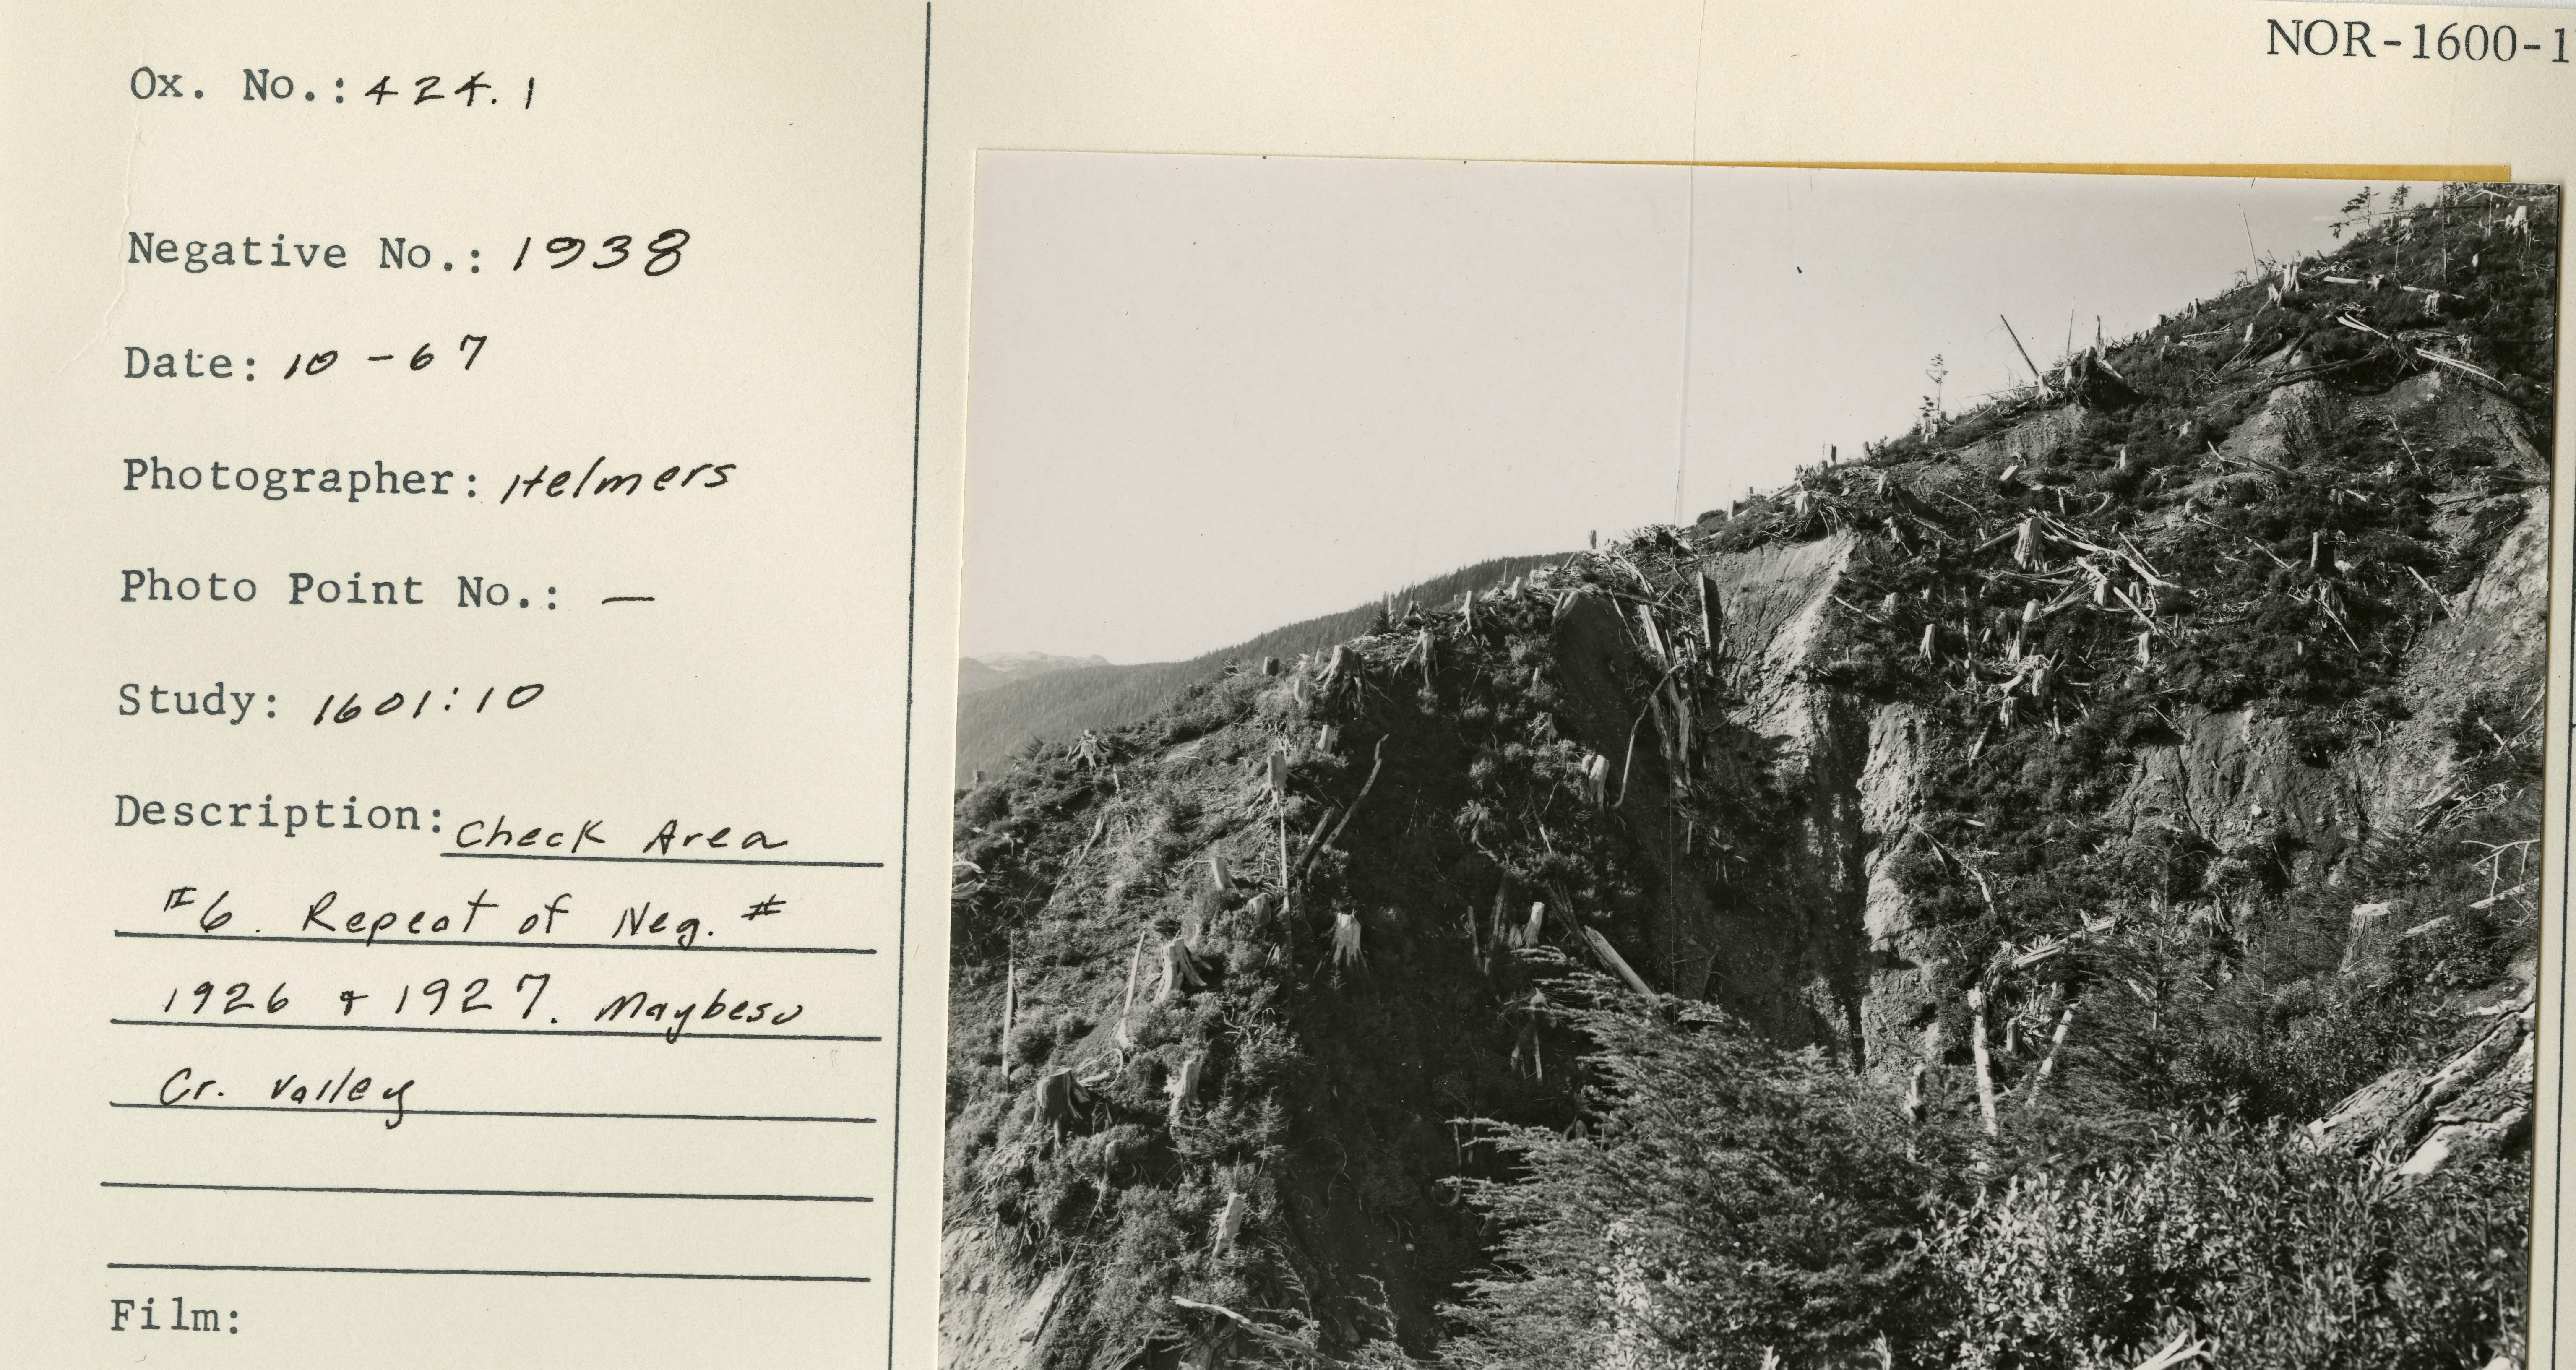 NOR-1600-1
Ox. No.: 424.1
Negative No.: 1938
Date: 10-67
Photographer: Helmers
Photo Point No.: —
Study: 1601:10
Description: Check Area
#6. Repeat of Neg. #
1926 & 1927. Maybeso
Cr. Valley
Film: